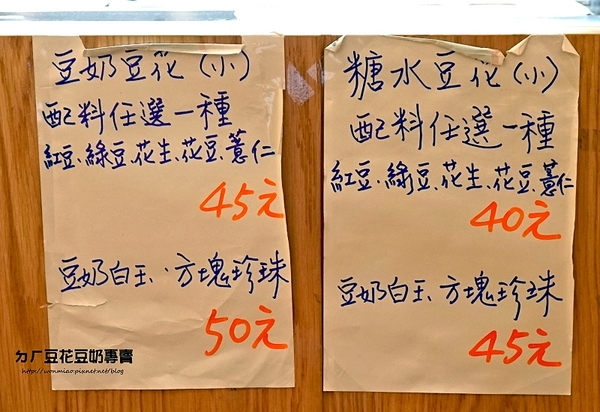 豆奶豆花(小)
配料任選一種
紅豆、綠豆、花生、花豆、薏仁
45元
豆奶白玉、方塊珍珠
50元
糖水豆花(小)
配料任選一種
紅豆、綠豆、花生、花豆、薏仁
40元
豆奶白玉、方塊珍珠
45元
ㄉ厂豆花豆奶專賣
http://wonmiao.pixnet.net/blog